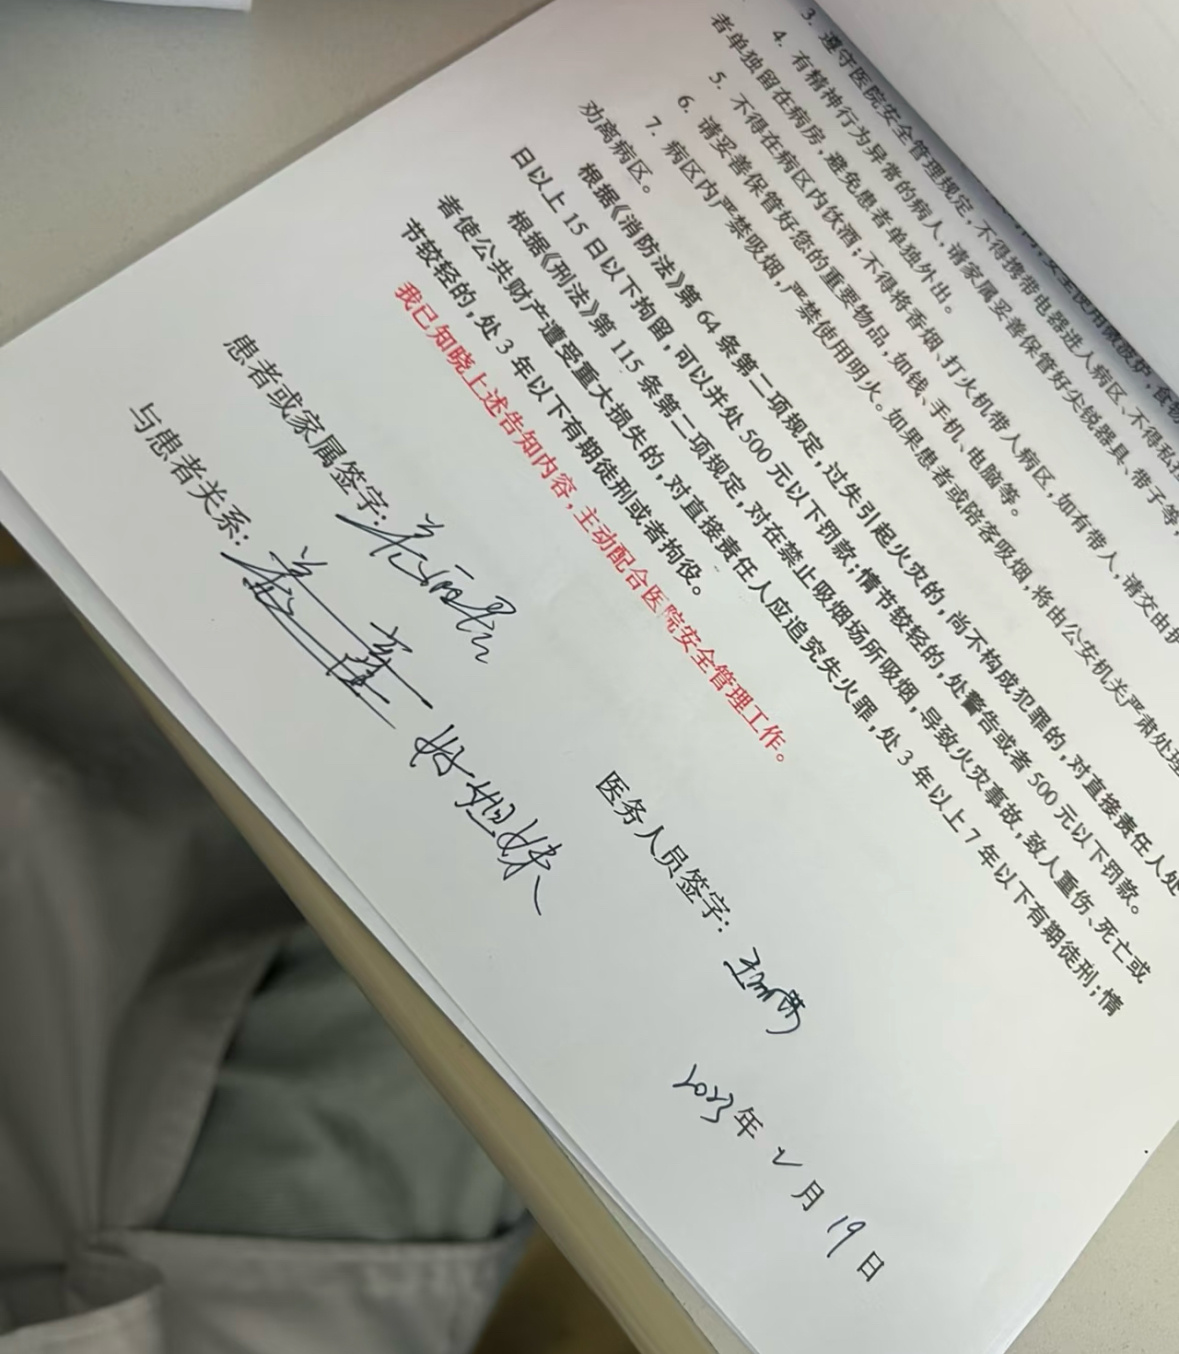 3. 遵守医院安全管理规定，不得携带电器进入病区、不得私拉
4. 有精神行为异常的病人，请家属妥善保管好尖锐器具、带子等，
者单独留在病房，避免患者单独外出。
5. 不得在病区内饮酒；不得将香烟、打火机带人病区，如有带人，请交由护
6. 请妥善保管好您的重要物品，如钱、手机、电脑等。
7. 病区内严禁吸烟，严禁使用明火。如果患者或陪客吸烟，将由公安机关严肃处理
劝离病区。
根据《消防法》第 64 条第二项规定，过失引起火灾的，尚不构成犯罪的，对直接责任人处
日以上 15 日以下拘留，可以并处 500 元以下罚款；情节较轻的，处警告或者 500 元以下罚款。
根据《刑法》第 115 条第二项规定，对在禁止吸烟场所吸烟，导致火灾事故，致人重伤、死亡或
者使公共财产遭受重大损失的，对直接责任人应追究失火罪，处 3 年以上 7 年以下有期徒刑；情
节较轻的，处 3 年以下有期徒刑或者拘役。
我已知晓上述告知内容，主动配合医院安全管理工作。
患者或家属签字：
与患者关系： 好姐妹
医务人员签字：
2023年2月19日